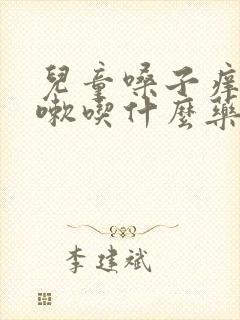 兒童嗓子癢
嗽喫什麼藥
李建斌